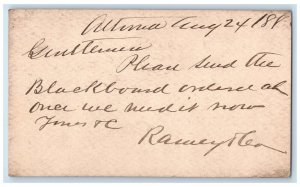 Altona Aug 24 188
Gentlemen
Please send the
Blackboard ordered at
once we need it now
Yours &C
Ramey & Co